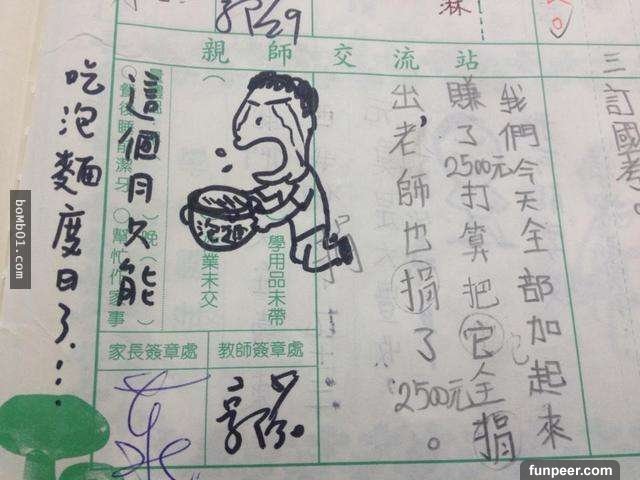 三訂國考。
親師交流站
我們今天全部加起來
賺了2500元打算把它全捐
出,老師也捐了2500元。
學用品未帶
業未交
晚
餐後睡前潔牙
幫忙作家事
泡麵
這個月只能
吃泡麵度日了...
教師簽章處
家長簽章處
郭
29
森
bomb01.com
funpeer.com